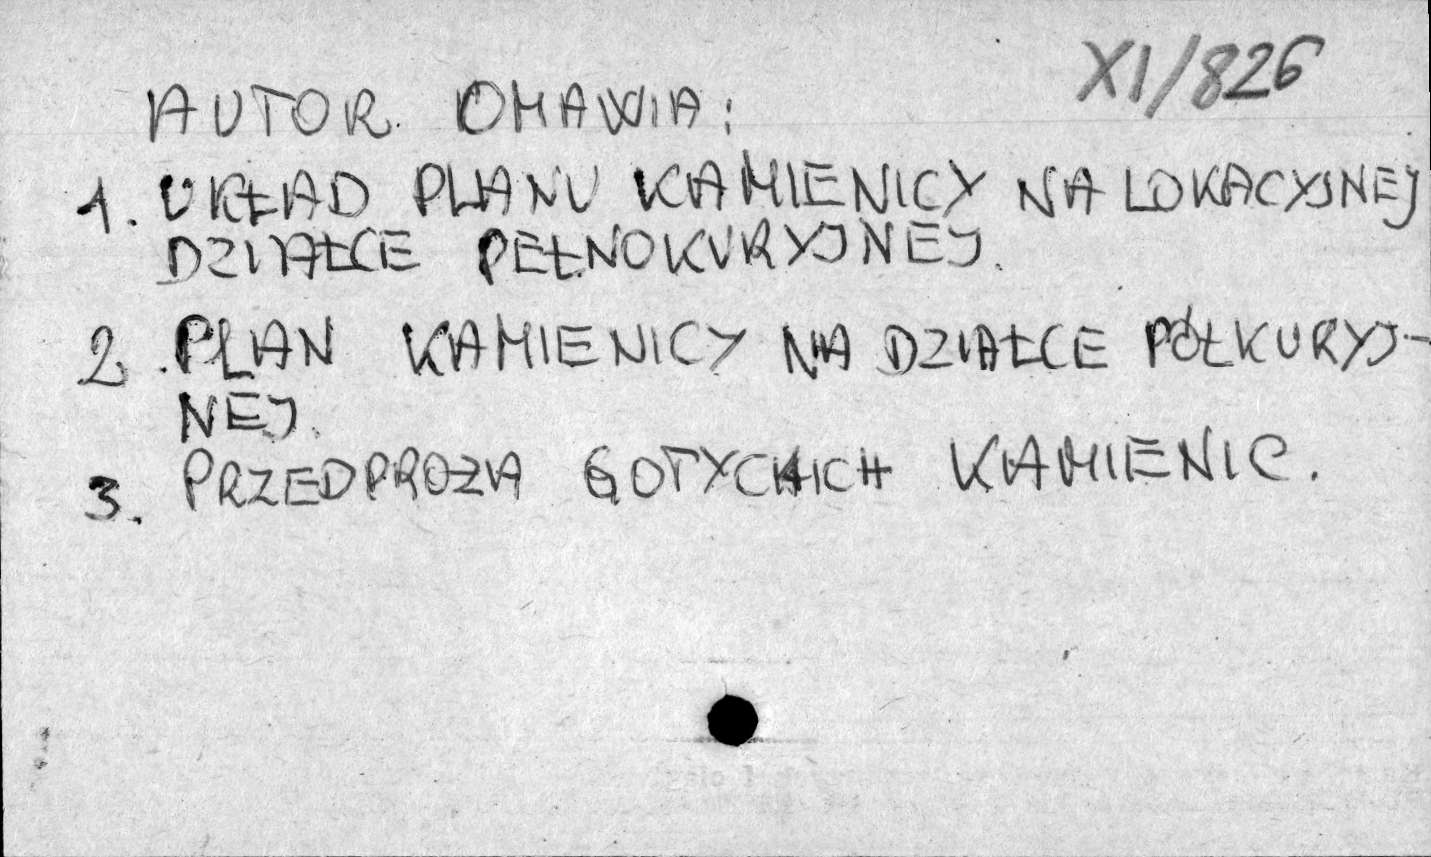 XI/826
AUTOR OMAWIA:
1. UKŁAD PLANU KAMIENICY NA LOKACYJNEJ
DZIAŁCE PEŁNOKURYJNEJ.
2. PLAN KAMIENICY NA DZIAŁCE PÓŁKURYJ-
NEJ.
3. PRZEDPROŻA GOTYCKICH KAMIENIC.